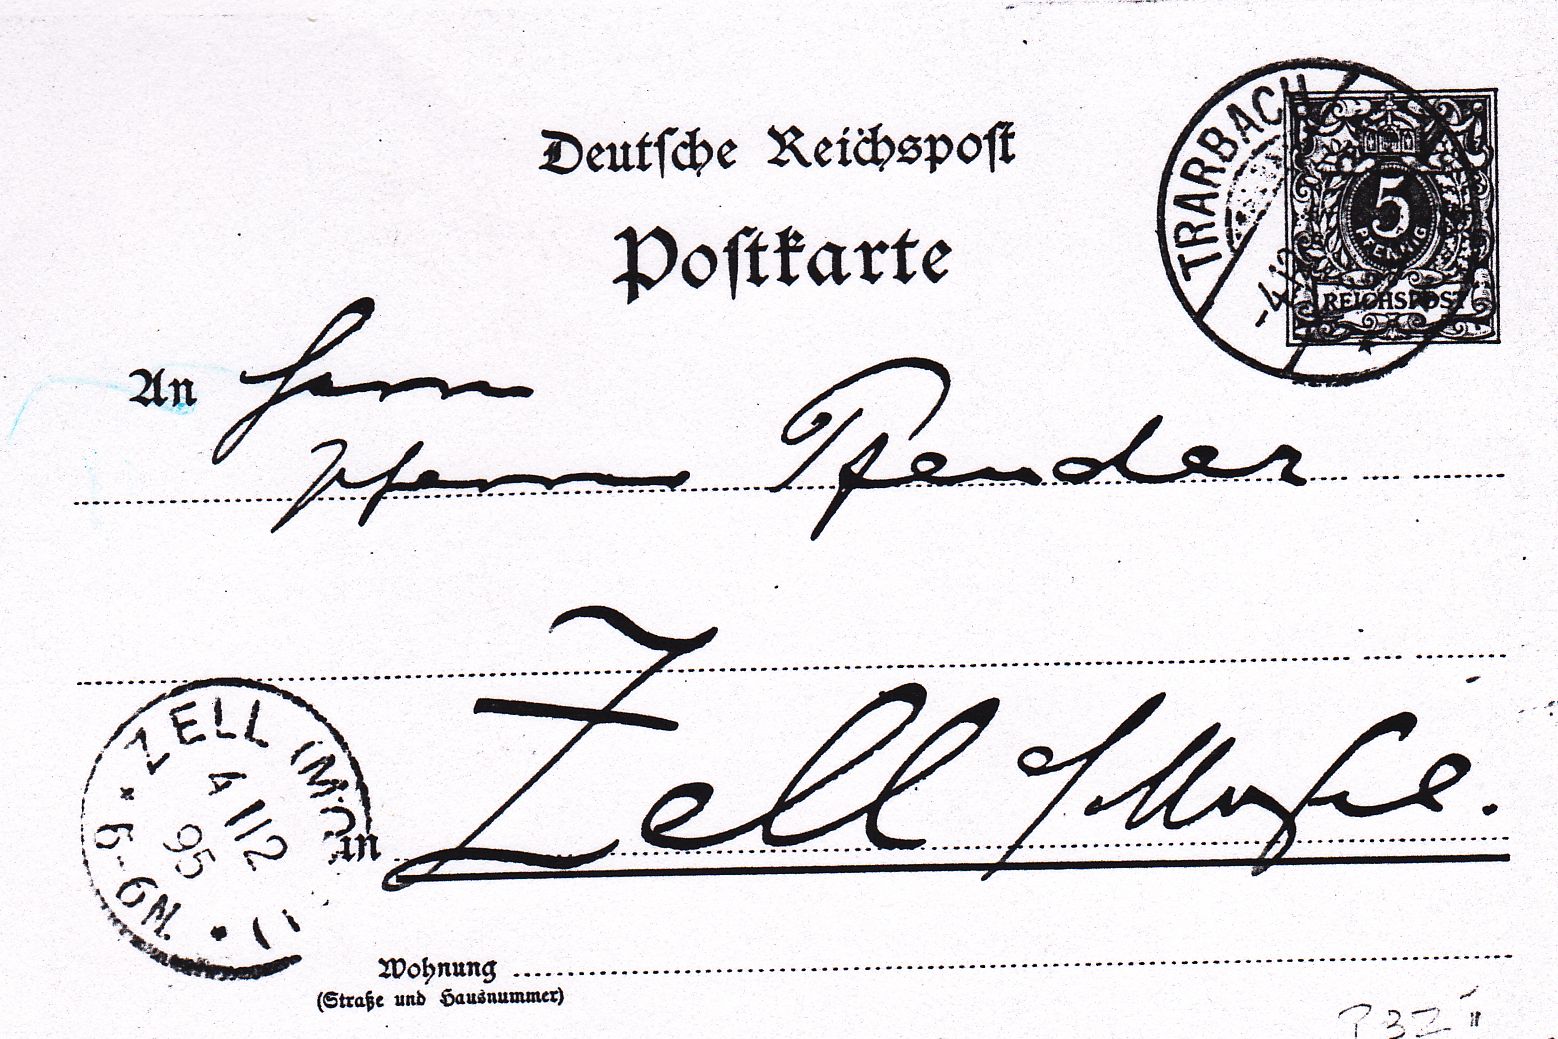 Deutsche Reichspost
Postkarte
TRARBACH
-4.12
5
PFENNIG
REICHSPOST
An Herrn
Pfarrer Pfender
ZELL (MOSEL)
4 12
95
5-6N
in Zell / Mosel.
Wohnung
(Straße und Hausnummer)
P 32 II